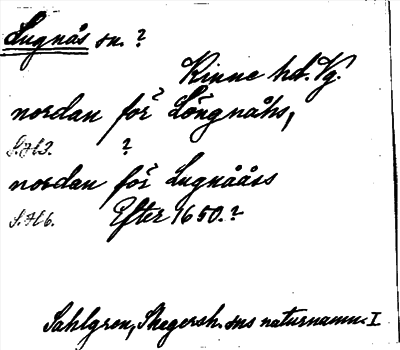 Lugnås sn. ?
Kinne hd. Vg.
nordan för Löngnåhs,
S.H3. ?
nordan för Lugnååss
S.H6. Efter 1650.?
Sahlgren, Skegersh. sns naturnamn. I